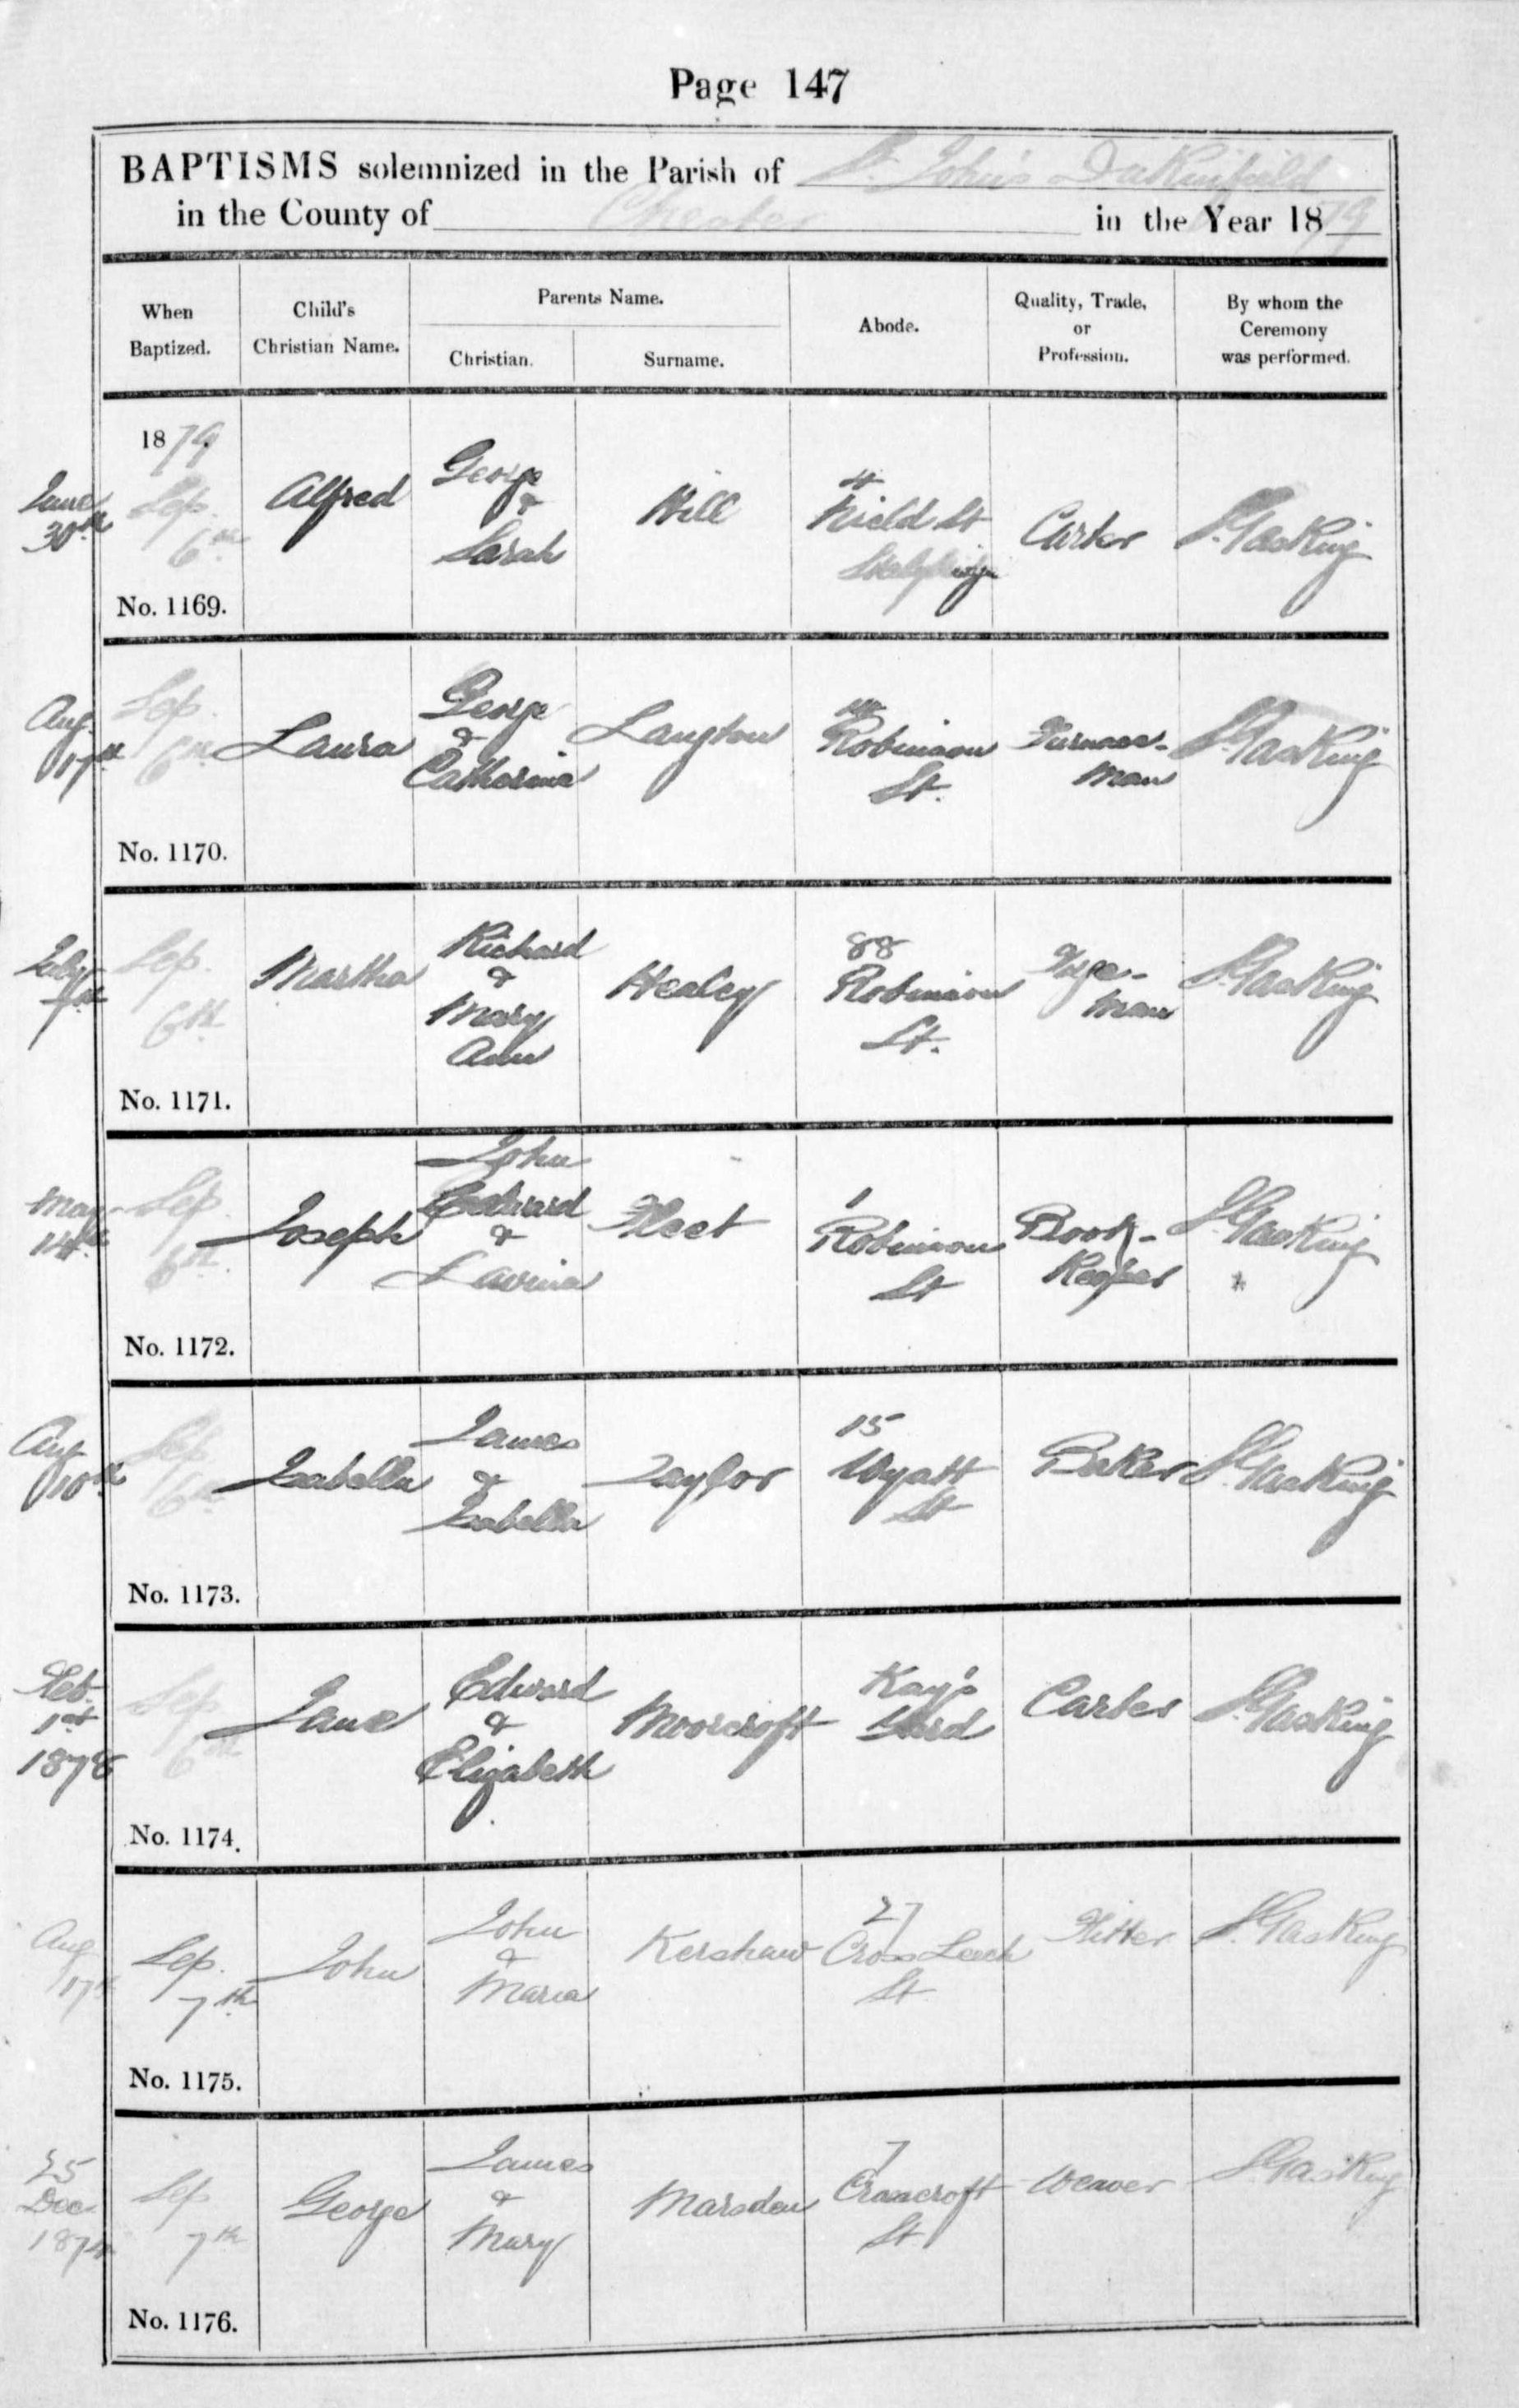 Page 147
BAPTISMS solemnized in the Parish of St. John's Dukinfield
in the County of Chester in the Year 1879
When
Baptized.
Child's
Christian Name.
Parents Name.
Christian.
Surname.
Abode.
Quality, Trade,
or
Profession.
By whom the
Ceremony
was performed.
June
30th
1879
Sep.
6th
No. 1169.
Alfred
George
&
Sarah
Hill
4
Nield St
Stalybridge
Carter
Gasking
Aug.
17th
Sep.
6th
No. 1170.
Laura
George
&
Catherine
Langton
Robinson
St.
Furnace-
man
Gasking
July
Sep.
6th
No. 1171.
Martha
Richard
&
Mary
Ann
Healey
88
Robinson
St.
Forge-
man
Gasking
May
14th
Sep.
6th
No. 1172.
Joseph
John
Edward
&
Lavinia
Fleet
1
Robinson
St
Book-
Keeper
Gasking
Aug
10th
Sep
6th
No. 1173.
Isabella
James
&
Isabella
Taylor
15
Wyatt
St
Baker
Gasking
Feb.
1st
1878
Sep
6th
No. 1174.
Jane
Edward
&
Elizabeth
Moorcroft
Kay's
Yard
Carter
Gasking
Aug
17th
Sep.
7th
No. 1175.
John
John
&
Maria
Kershaw
27
Cross Leech
St
Fitter
Gasking
25
Dec
1874
Sep
7th
No. 1176.
George
James
&
Mary
Marsden
7
St
Weaver
Gasking